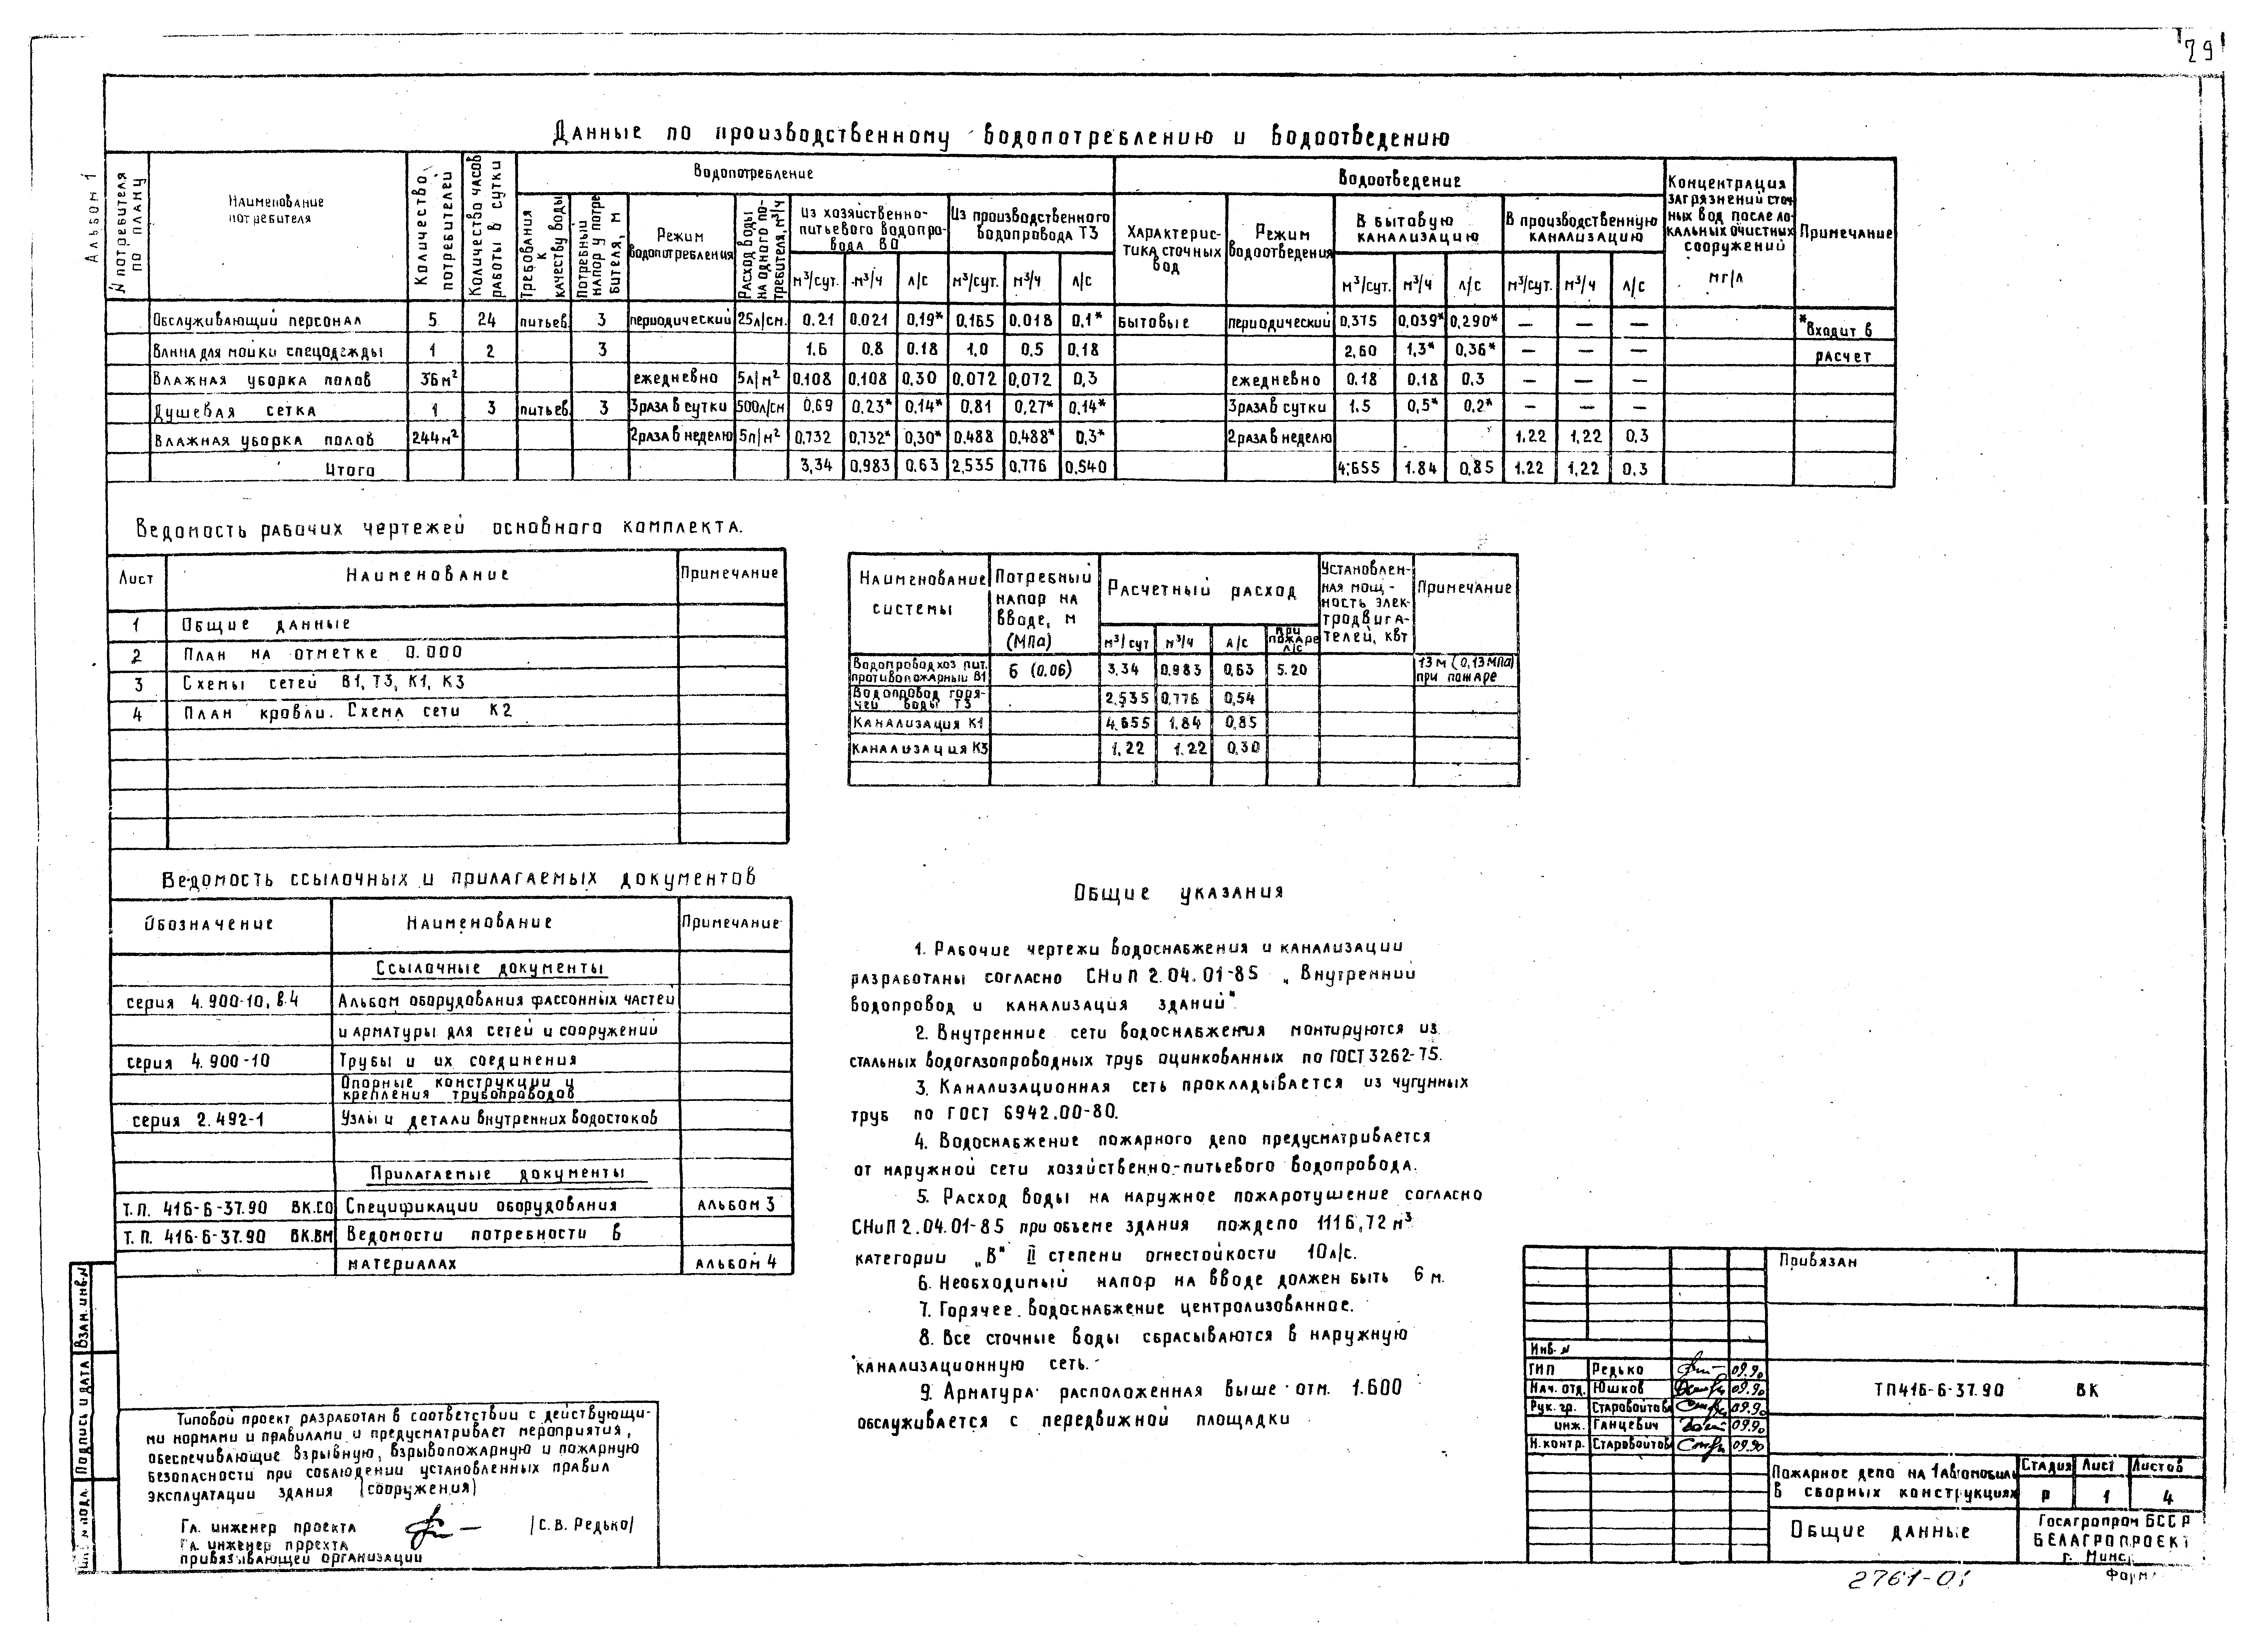 29
Альбом 1
Данные по производственному водопотреблению и водоотведению
N потребителя по плану
Наименование потребителя
Количество потребителей
Количество часов работы в сутки
Водопотребление
Водоотведение
Концентрация загрязнений сточных вод после локальных очистных сооружений мг/л
Примечание
Требования к качеству воды
Потребный напор у потребителя, м
Режим водопотребления
Расход воды на одного потребителя, м³/ч
Из хозяйственно-питьевого водопровода В0
Из производственного водопровода Т3
Характеристика сточных вод
Режим водоотведения
В бытовую канализацию
В производственную канализацию
м³/сут. м³/ч л/с м³/сут. м³/ч л/с м³/сут. м³/ч л/с м³/сут. м³/ч л/с
Обслуживающий персонал 5 24 питьев. 3 периодический 25л/см. 0.21 0.021 0,19* 0.165 0.018 0,1* бытовые периодический 0,375 0,039* 0,290* — — — *входит в
Ванна для мойки спецодежды 1 2 3 1,6 0,8 0.18 1,0 0,5 0.18 2,60 1,3* 0,36* — — — расчет
Влажная уборка полов 36м² ежедневно 5л/м² 0.108 0.108 0,30 0,072 0,072 0,3 ежедневно 0.18 0.18 0,3 — — —
Душевая сетка 1 3 питьев. 3 3раза в сутки 500л/см 0,69 0,23* 0,14* 0.81 0,27* 0,14* 3раза в сутки 1.5 0,5* 0,2* — — —
Влажная уборка полов 244м² 2раза в неделю 5л/м² 0,732 0,732* 0,30* 0.488 0.488* 0,3* 2раза в неделю 1,22 1,22 0.3
Итого 3,34 0.983 0.63 2,535 0,776 0,540 4,655 1.84 0,85 1.22 1,22 0.3
Ведомость рабочих чертежей основного комплекта.
Лист Наименование Примечание
1 Общие данные
2 План на отметке 0.000
3 Схемы сетей В1, Т3, К1, К3
4 План кровли. Схема сети К2
Наименование системы
Потребный напор на вводе, м (МПа)
Расчетный расход
Установленная мощность электродвигателей, квт
Примечание
м³/сут м³/ч л/с при пожаре л/с
Водопровод хоз. пит. противопожарный В1 6 (0.06) 3.34 0.983 0,63 5.20 13м (0,13МПа) при пожаре
Водопровод горячей воды Т3 2,535 0,776 0,54
Канализация К1 4,655 1,84 0,85
Канализация К3 1,22 1.22 0,30
Ведомость ссылочных и прилагаемых документов
Обозначение Наименование Примечание
Ссылочные документы
серия 4.900-10, в.4 Альбом оборудования фассонных частей
и арматуры для сетей и сооружений
серия 4.900-10 Трубы и их соединения
Опорные конструкции и
крепления трубопроводов
серия 2.492-1 Узлы и детали внутренних водостоков
Прилагаемые документы
Т.П. 416-6-37.90 ВК.СО Спецификации оборудования альбом 3
Т.П. 416-6-37.90 ВК.ВМ Ведомости потребности в
материалах альбом 4
Общие указания
1. Рабочие чертежи водоснабжения и канализации
разработаны согласно СНиП 2.04.01-85 „Внутренний
водопровод и канализация зданий".
2. Внутренние сети водоснабжения монтируются из
стальных водогазопроводных труб оцинкованных по ГОСТ 3262-75.
3. Канализационная сеть прокладывается из чугунных
труб по ГОСТ 6942.00-80.
4. Водоснабжение пожарного депо предусматривается
от наружной сети хозяйственно-питьевого водопровода.
5. Расход воды на наружное пожаротушение согласно
СНиП 2.04.01-85 при объеме здания пождепо 1116,72 м³
категории „В" II степени огнестойкости 10л/с.
6. Необходимый напор на вводе должен быть 6 м.
7. Горячее водоснабжение централизованное.
8. Все сточные воды сбрасываются в наружную
канализационную сеть.
9. Арматура расположенная выше отм. 1.600
обслуживается с передвижной площадки
Типовой проект разработан в соответствии с действующи-
ми нормами и правилами и предусматривает мероприятия,
обеспечивающие взрывную, взрывопожарную и пожарную
безопасности при соблюдении установленных правил
эксплуатации здания (сооружения)
Гл. инженер проекта /С.В. Редько/
Гл. инженер проекта
привязывающей организации
Взам. инв. N
Подпись и дата
Инв. N подл.
Привязан
Инв. N
ГИП Редько 09.90
Нач. отд. Юшков 09.90
Рук. гр. Старовойтова 09.90
инж. Ганцевич 09.90
Н. контр. Старовойтов 09.90
ТП416-6-37.90 ВК
Пожарное депо на 1 автомобиль
в сборных конструкциях
Стадия Лист Листов
Р 1 4
Общие данные
Госагропром БССР
БЕЛАГРОПРОЕКТ
г. Минск
2761-01
Форм